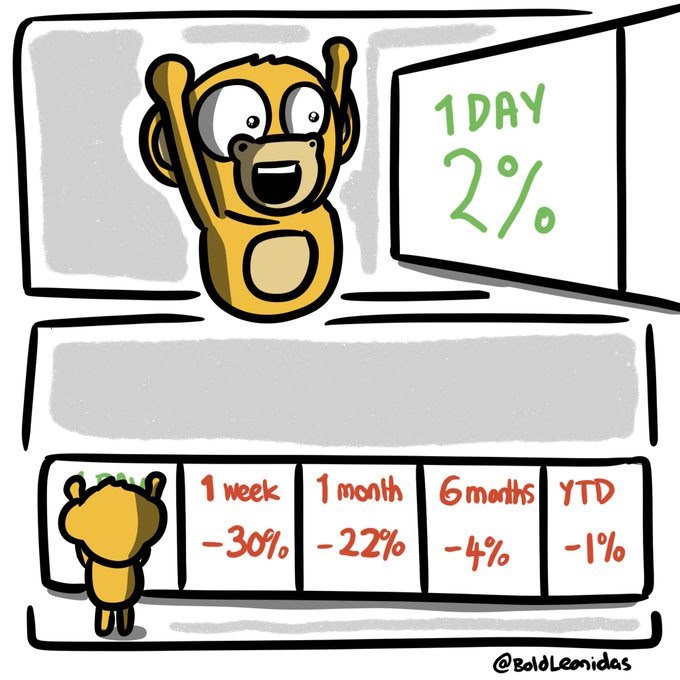 1 DAY
2%
1 week
1 month
6 months
YTD
-30%
-22%
-4%
-1%
@BoldLeonidas